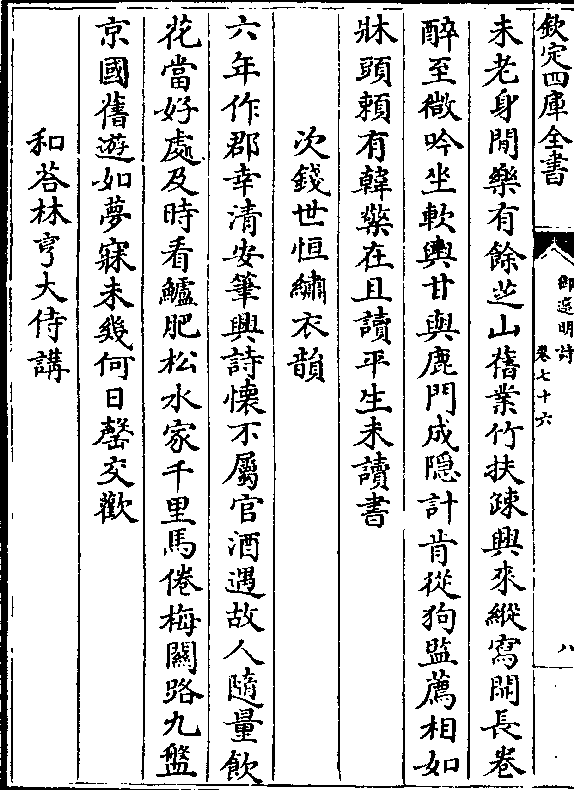 欽定四庫全書
御選明詩
卷七十六
八
未老身閒樂有餘芝山舊業竹扶疎興來縱寫開長卷
醉至微吟坐軟輿甘與鹿門成隐計肯從狗監薦相如
牀頭賴有韓欒在且讀平生未讀書
次錢世恒繡衣韻
六年作郡幸清安筆興詩懷不屬官酒遇故人隨量飲
花當好處及時看鱸肥松水家千里馬倦梅關路九盤
京國舊遊如夢寐未㡬何日罄交歡
和荅林亨大侍講